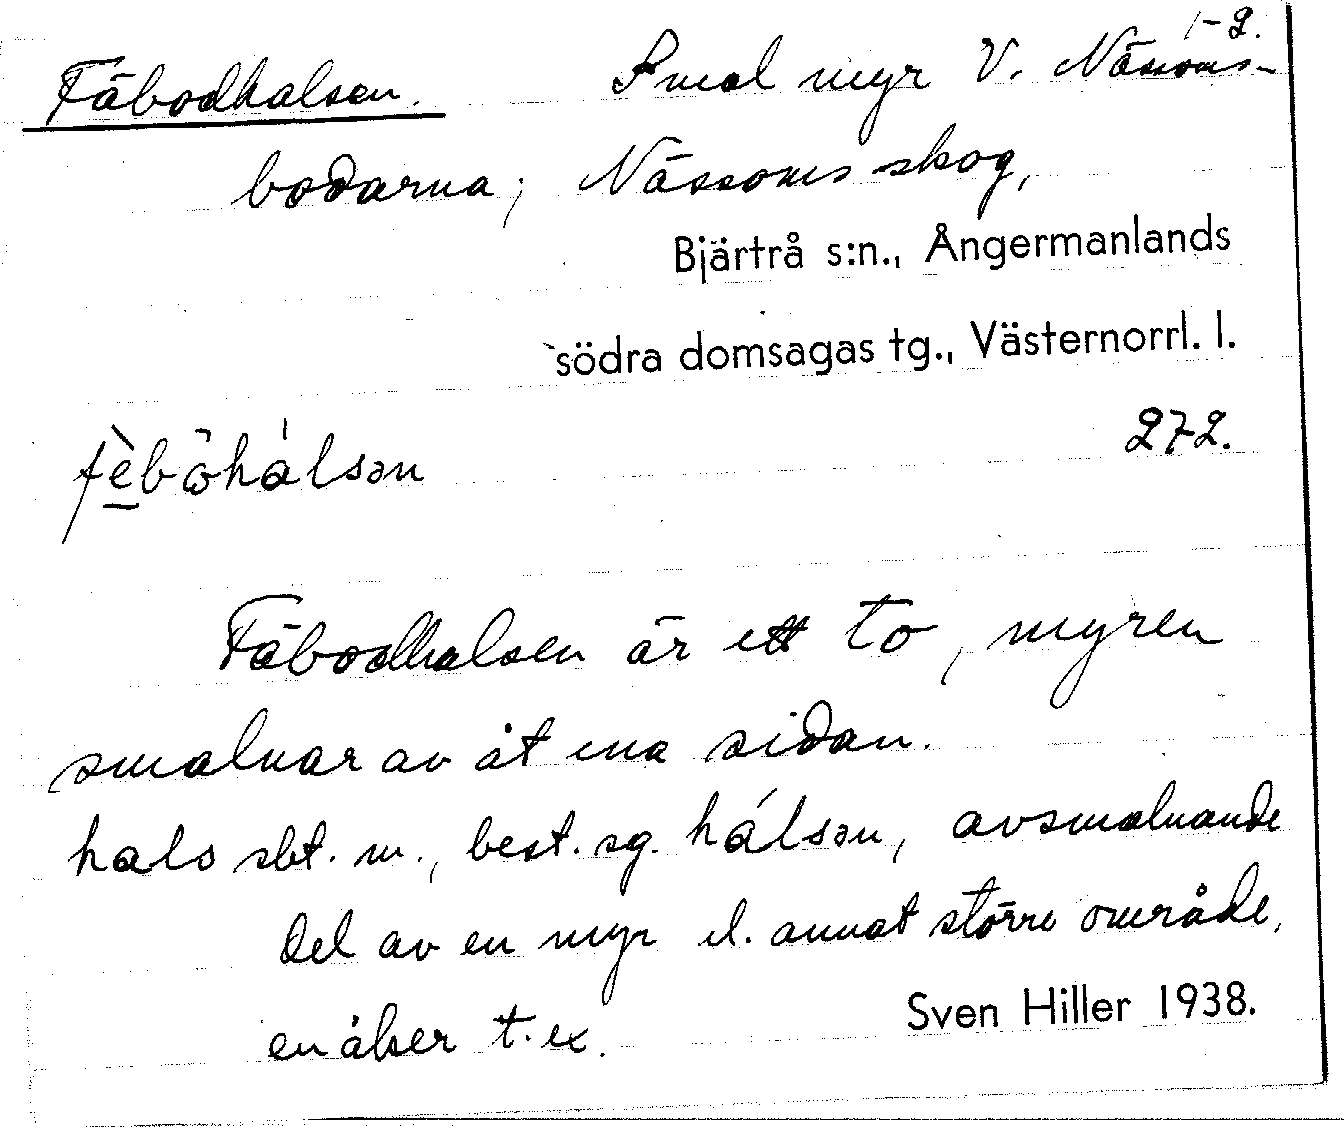 1-2.
Fäbodhalsen. Smal myr V. Nässoms-
bodarna; Nässoms skog,
Bjärtrå s:n., Ångermanlands
södra domsagas tg., Västernorrl. l.
272.
Fäbodhalsen är ett to, myren
smalnar av åt ena sidan.
hals sbt. m., best. sg. hálsən, avsmalnande
del av en myr el. annat större område,
en åker t. ex.
Sven Hiller 1938.